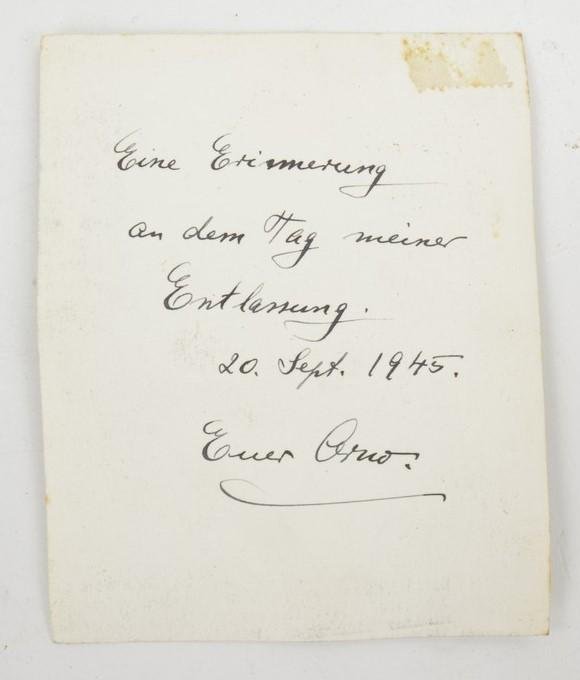 Eine Erinnerung
an dem Tag meiner
Entlassung.
20. Sept. 1945.
Euer Arno.